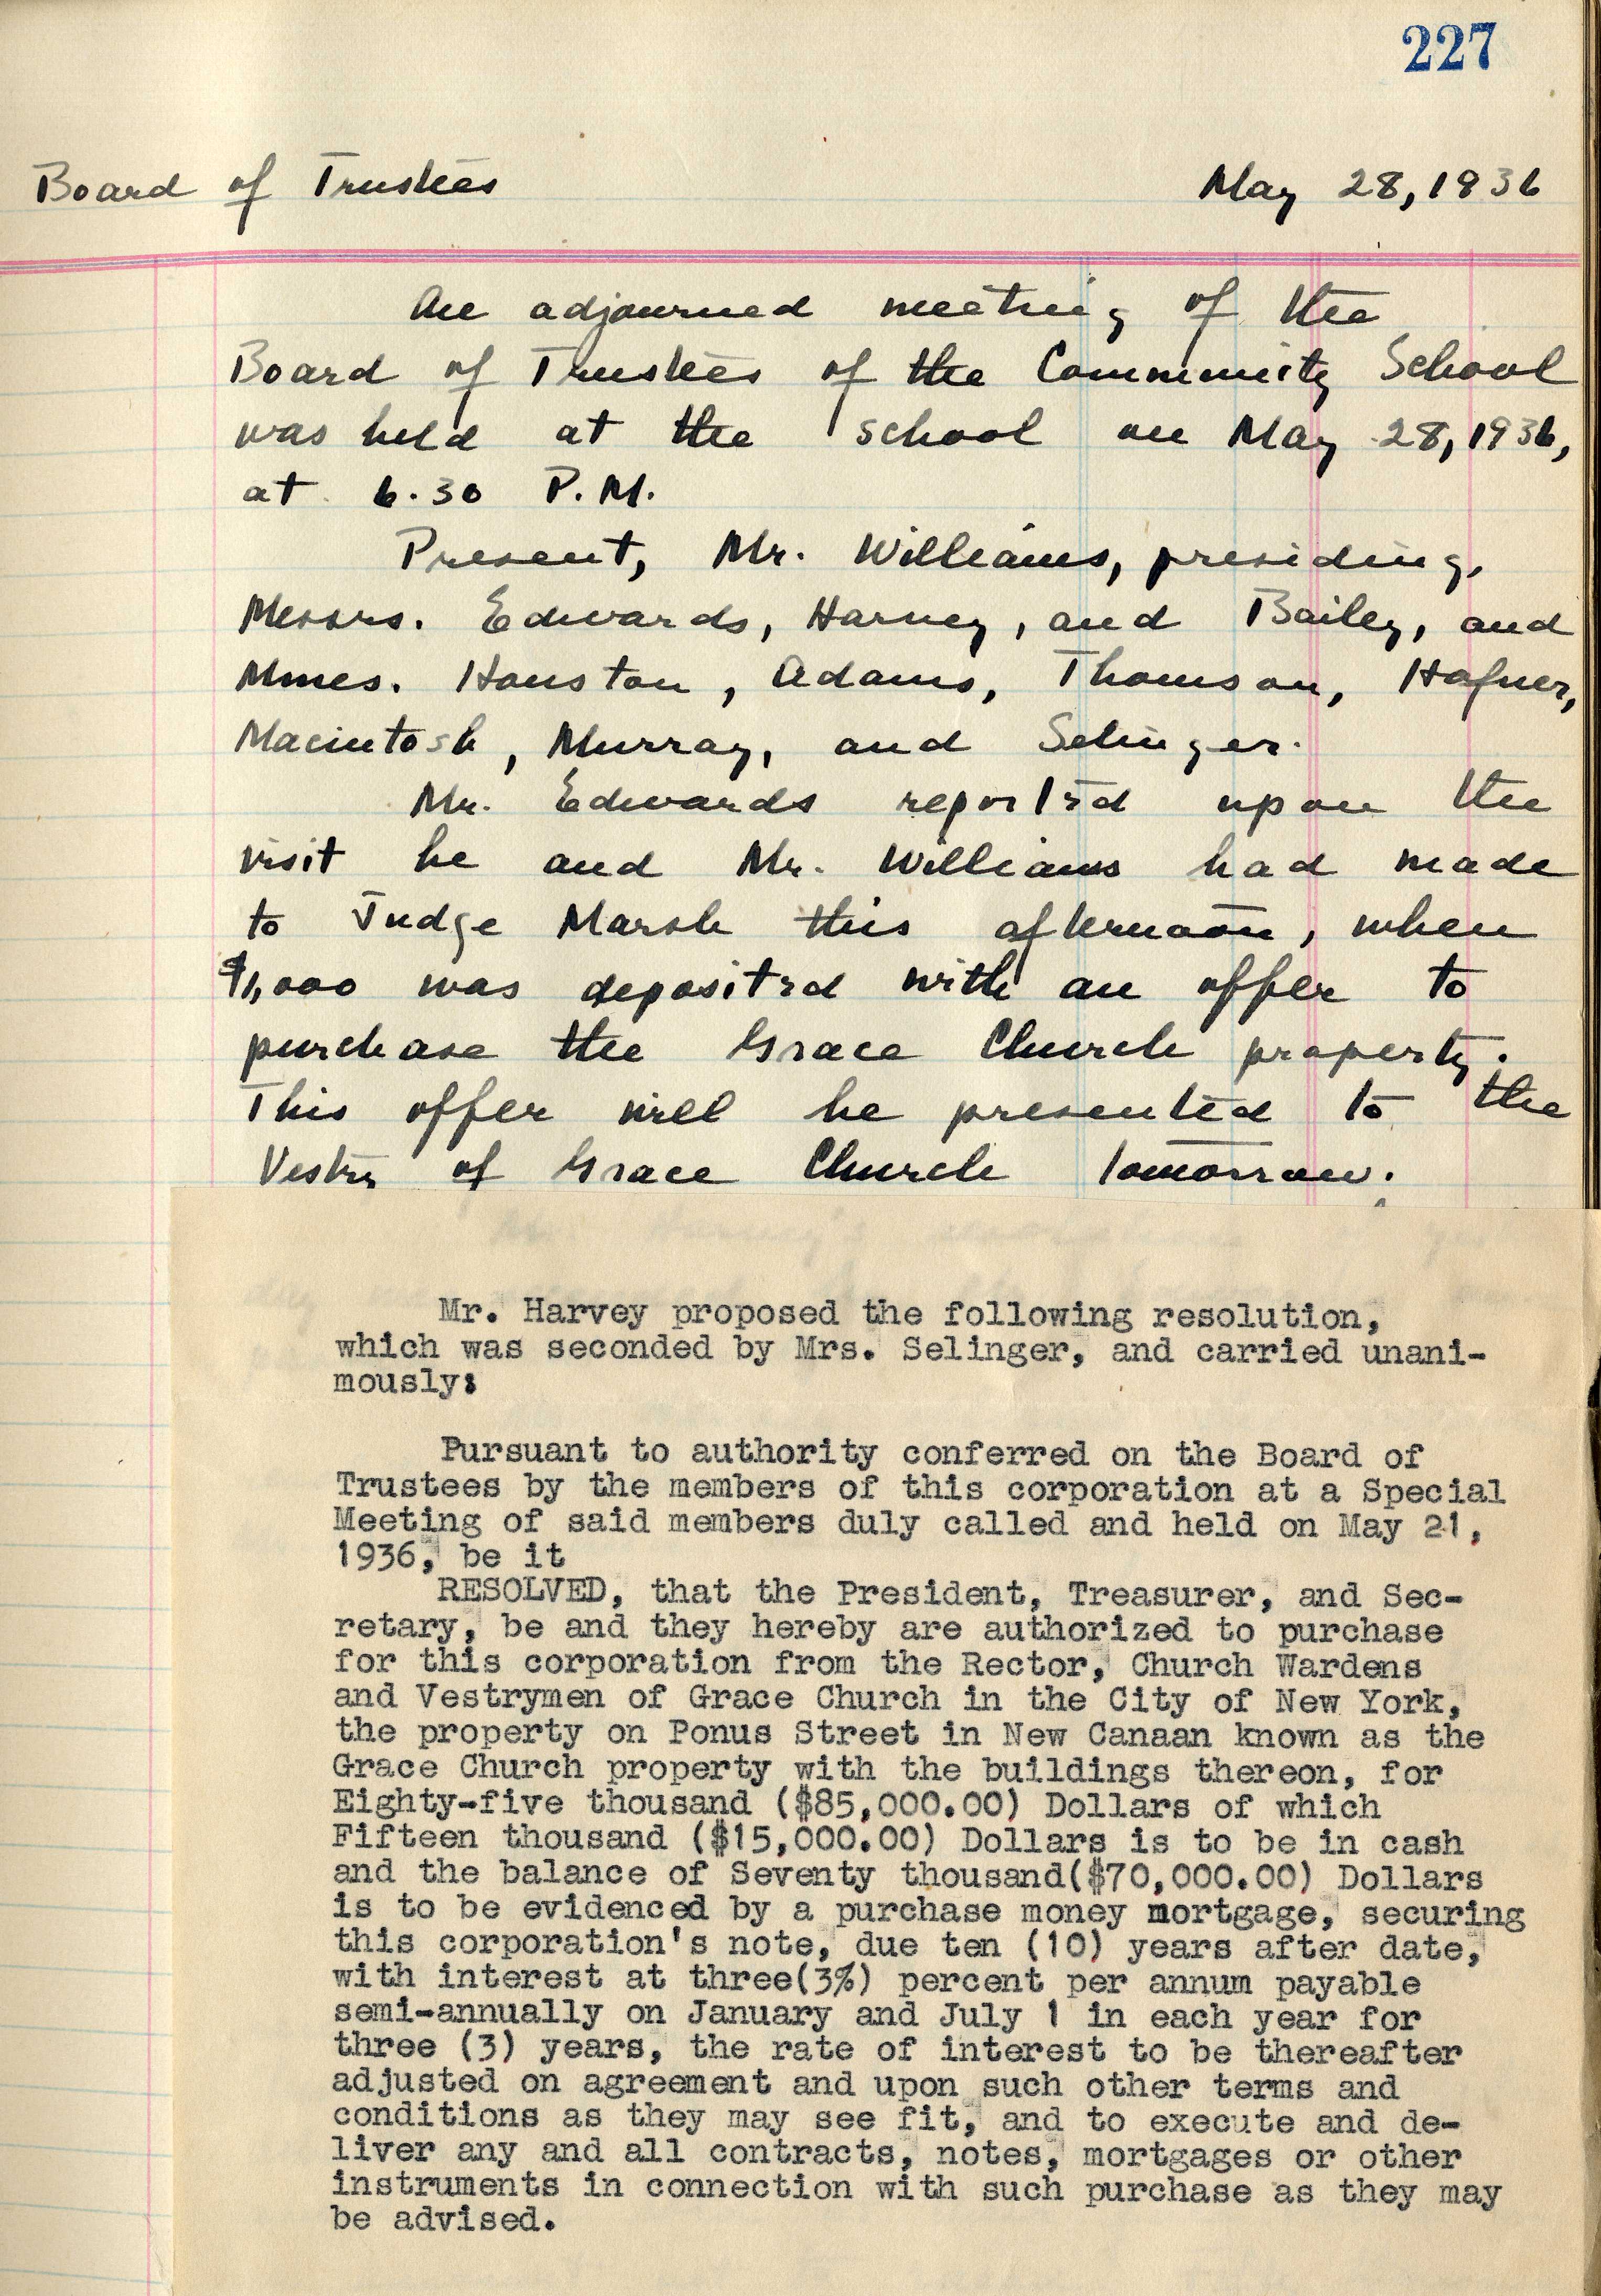 227
Board of Trustees May 28, 1936
An adjourned meeting of the
Board of Trustees of the Community School
was held at the school on May 28, 1936,
at 6.30 P.M.
Present, Mr. Williams, presiding,
Messrs. Edwards, Harvey, and Bailey, and
Mmes. Houston, Adams, Thomson, Hafner,
Macintosh, Murray, and Selinger.
Mr. Edwards reported upon the
visit he and Mr. Williams had made
to Judge Marsh this afternoon, when
$1,000 was deposited with an offer to
purchase the Grace Church property.
This offer will be presented to the
Vestry of Grace Church tomorrow.
Mr. Harvey proposed the following resolution,
which was seconded by Mrs. Selinger, and carried unani-
mously:
Pursuant to authority conferred on the Board of
Trustees by the members of this corporation at a Special
Meeting of said members duly called and held on May 21,
1936, be it
RESOLVED, that the President, Treasurer, and Sec-
retary, be and they hereby are authorized to purchase
for this corporation from the Rector, Church Wardens
and Vestrymen of Grace Church in the City of New York,
the property on Ponus Street in New Canaan known as the
Grace Church property with the buildings thereon, for
Eighty-five thousand ($85,000.00) Dollars of which
Fifteen thousand ($15,000.00) Dollars is to be in cash
and the balance of Seventy thousand($70,000.00) Dollars
is to be evidenced by a purchase money mortgage, securing
this corporation's note, due ten (10) years after date,
with interest at three(3%) percent per annum payable
semi-annually on January and July 1 in each year for
three (3) years, the rate of interest to be thereafter
adjusted on agreement and upon such other terms and
conditions as they may see fit, and to execute and de-
liver any and all contracts, notes, mortgages or other
instruments in connection with such purchase as they may
be advised.